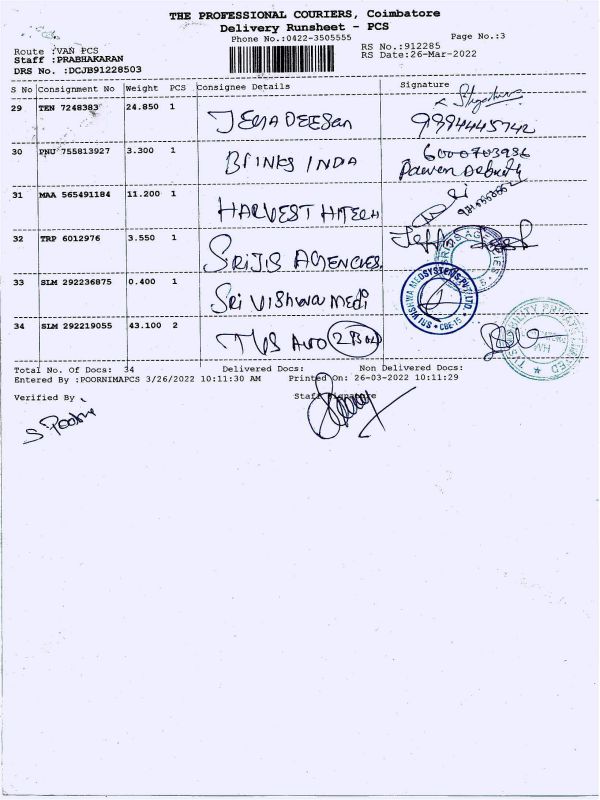 THE PROFESSIONAL COURIERS, Coimbatore
Delivery Runsheet - PCS
Phone No.:0422-3505555 Page No.:3
Route :VAN PCS RS No.:912285
Staff :PRABHAKARAN RS Date:26-Mar-2022
DRS No. :DCJB91228503
S No Consignment No Weight PCS Consignee Details Signature
29 TEN 7248383 24.850 1 JEGADEESan 9994445742
30 PNU 755813927 3.300 1 BRINKS INDIA 6000703936
Pawen Debnath
31 MAA 565491184 11.200 1 HARVEST HITECH
32 TRP 6012976 3.550 1 SRIJIS AGENCIES
33 SLM 292236875 0.400 1 Sri Vishwa Medi
SRI VISHWA MEDSYSTEMS PVT LTD. CBE-15
34 SLM 292219055 43.100 2 TVS Auto
Total No. Of Docs: 34 Delivered Docs: Non Delivered Docs:
Entered By :POORNIMAPCS 3/26/2022 10:11:30 AM Printed On: 26-03-2022 10:11:29
Verified By Staff Signature